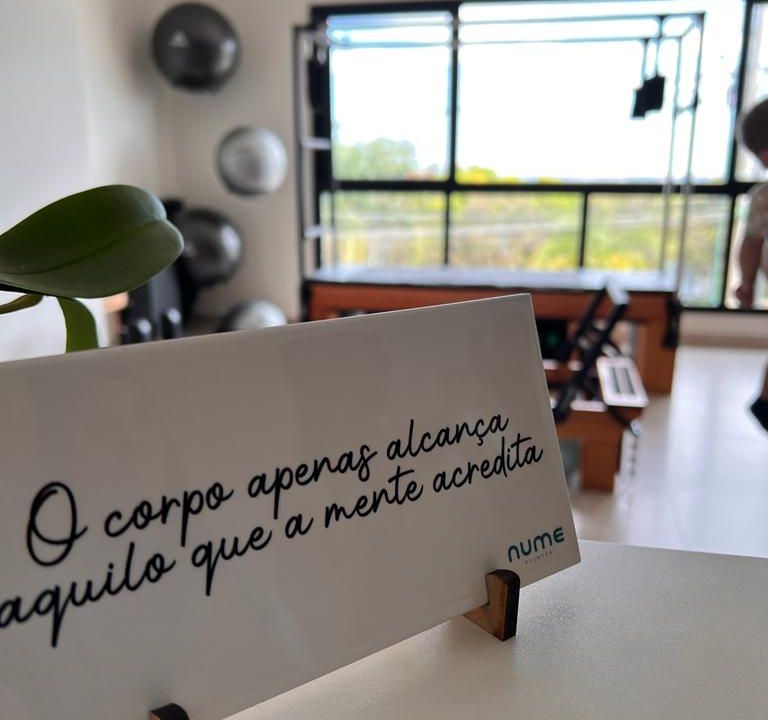 O corpo apenas alcança
aquilo que a mente acredita
nume